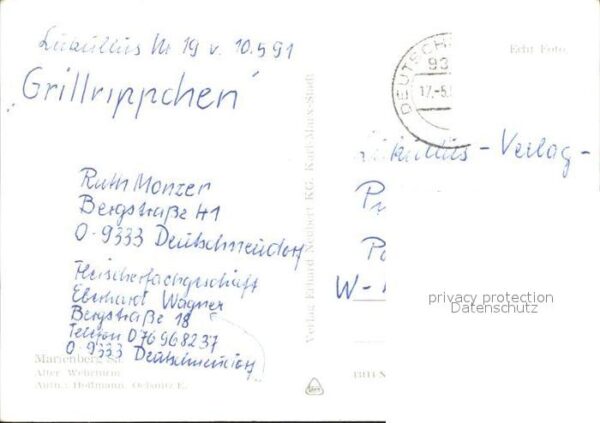 Lukullus Nr 19 v. 10.5.91
"Grillrippchen"
Ruth Monzer
Bergstraße 41
O-9333 Deutschneudorf
Fleischerfachgeschäft
Eberhardt Wagner
Bergstraße 18
Telefon 076968237
O-9333 Deutschneudorf
Marienberg Sa.
Alter Wehrturm
Aufn.: Hoffmann, Oelsnitz E.
Verlag Erhard Neubert KG, Karl-Marx-Stadt
Echt Foto
DEUTSCH
93
17.-5.
Lukullus-Verlag-
P
W-
privacy protection
Datenschutz